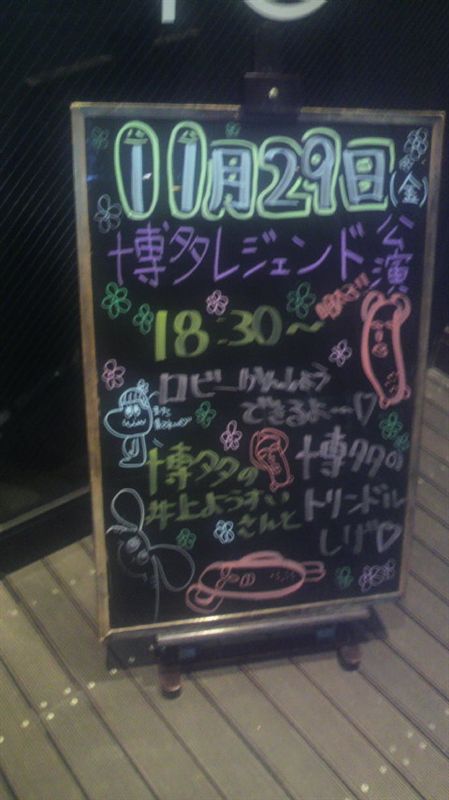 11月29日(金)
博多レジェンド公演
18:30～
ロビーかんしょう
できるよー♡
博多の
井上ようすい
さんと
博多の
トリンドル
しげ♡